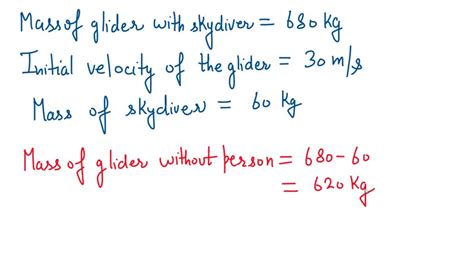 Mass of glider with skydiver = 680 kg
Initial velocity of the glider = 30 m/s
Mass of skydiver = 60 kg
Mass of glider without person = 680 - 60
= 620 Kg